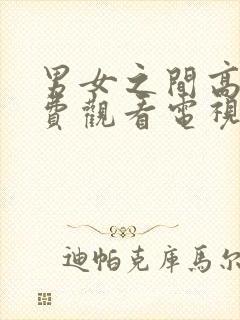 男女之間高
費觀看電視
迪帕克庫馬尔